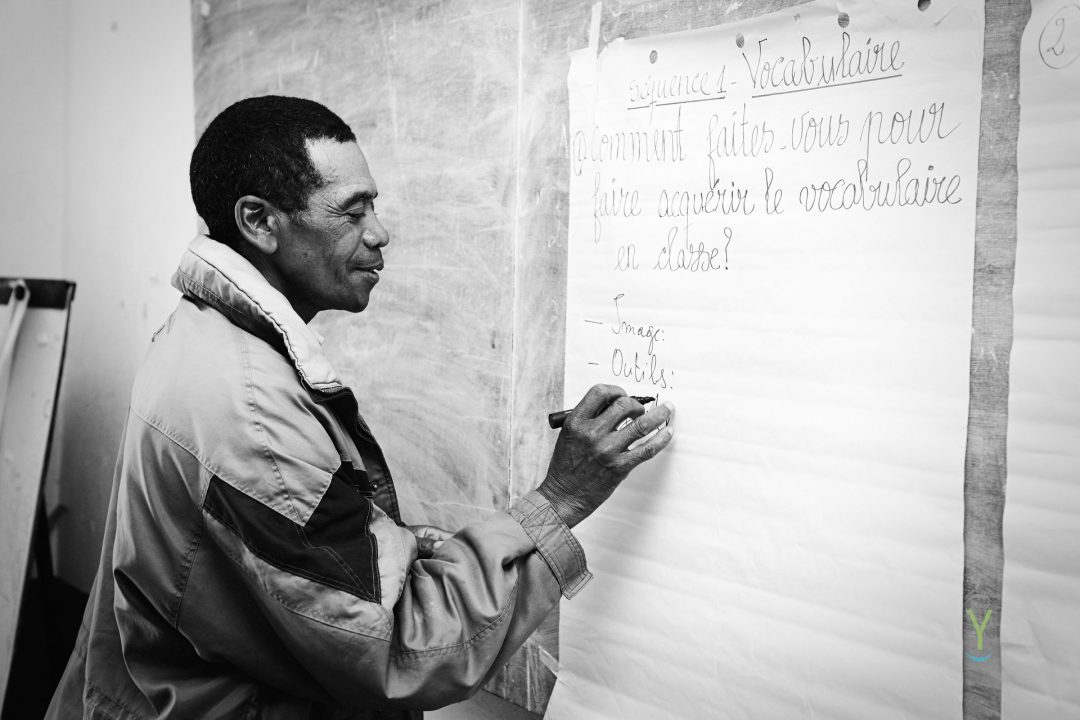 séquence 1 - Vocabulaire
1) Comment faites-vous pour
faire acquérir le vocabulaire
en classe?
- Image:
- Outils:
2
Y